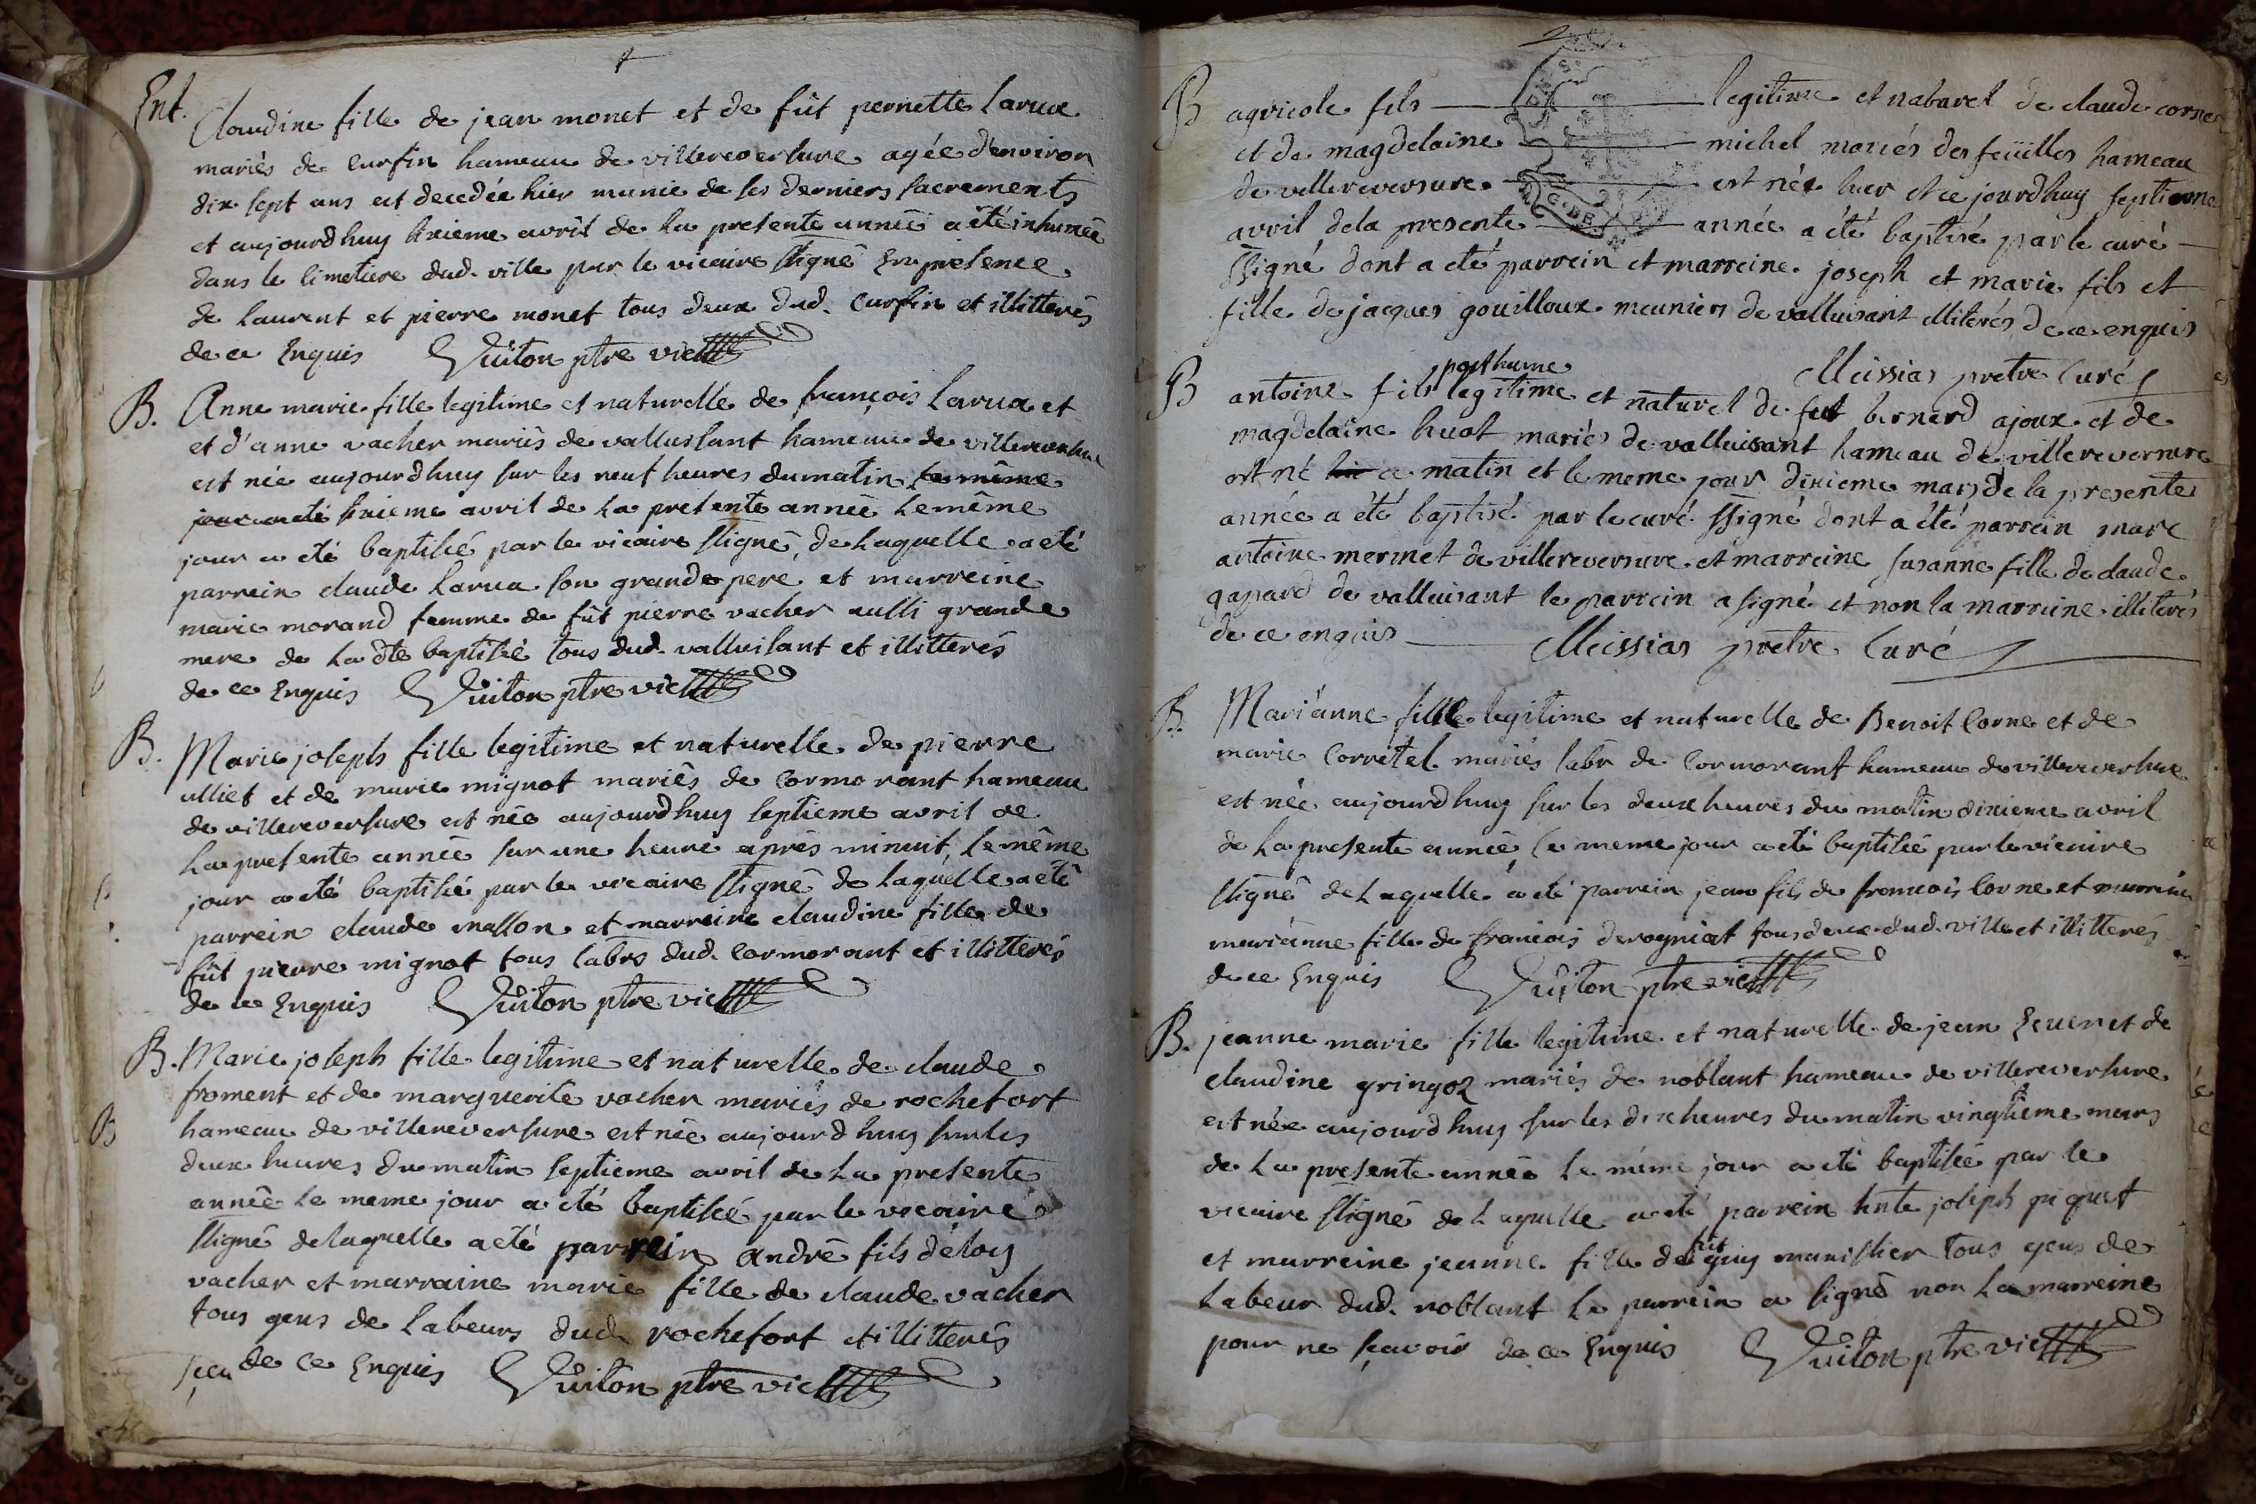 Ent. Claudine fille de jean monet et de fût pernette Larua
mariés de Curfin hameau de villereversure agée d'environ
dix sept ans est decedée hier munie de ses derniers sacrements
et aujourdhuy sixieme avril de la presente année a été inhumée
dans le cimetiere dud. ville par le vicaire ssigné En presence
de Laurent et pierre monet tous deux dud. Curfin et illitterés
de ce Enquis Guiton ptre vic
B. Anne marie fille legitime et naturelle de françois Larua et
et d'anne vacher mariés de valluisant hameau de villereversure
est née aujourdhuy sur les neuf heures du matin le même
jour a été sixieme avril de la presente année le même
jour a été baptisée par le vicaire ssigné, de laquelle a été
parrein claude Larua son grand pere et marreine
marie morand femme de fût pierre vacher aussi grande
mere de la dte baptisée tous dud. valluisant et illitterés
de ce Enquis Guiton ptre vic
B. Marie joseph fille legitime et naturelle de pierre
ulliet et de marie mignot mariés de Cormorant hameau
de villereversure est née aujourdhuy septieme avril de
la presente année sur une heure aprés minuit, le même
jour a été baptisée par le vicaire ssigné de laquelle a été
parrein claude mallon et marreine claudine fille de
fût pierre mignot tous labrs dud. Cormorant et illitterés
de ce Enquis Guiton ptre vic
B. Marie joseph fille legitime et naturelle de claude
froment et de marguerite vacher mariés de rochefort
B hameau de villereversure est née aujourdhuy sur les
deux heures du matin septieme avril de la presente
année le meme jour a été baptisée par le vicaire
ssigné de laquelle a été parrein andré fils d'éloy
vacher et marraine marie fille de claude vacher
tous gens de labeurs dud. rochefort et illitterés
de ce Enquis Guiton ptre vic
2
B agricole fils legitime et naturel de claude corne
et de magdelaine michel mariés des feüilles hameau
de villereversure est né hier et ce jourdhuy septieme
avril de la presente année a été baptisé par le curé
ssigné dont a été parrein et marreine joseph et marie fils et
fille de jacques gouilloux meuniers de valluisant illiterés de ce enquis
Meissias pretre Curé
posthume
B antoine fils legitime et naturel de feut bernard ajoux et de
magdelaine huot mariés de valluisant hameau de villereversure
est né hier ce matin et le meme jour dixieme mars de la presente
année a été baptisé par le curé ssigné dont a été parrein marc
antoine mermet de villereversure et marreine susanne fille de claude
gapard de valluisant le parrein a signé et non la marreine illiterés
de ce enquis Meissias pretre Curé
B. Mariánne fille legitime et naturelle de Benoit Corne et de
marie Corretel mariés labr de Cormorant hameau de villereversure
est née aujourdhuy sur les deux heures du matin dixieme avril
de la presente année, le meme jour a été baptisée par le vicaire
ssigné de laquelle a été parrein jean fils de francois Corne et marreine
mariànne fille de francois derogniat tous deux dud. ville et illitterés
de ce Enquis Guiton ptre vic
B. jeanne marie fille legitime et naturelle de jean Revenet de
claudine gringoz mariés de noblant hameau de villereversure
est née aujourdhuy sur les dix heures du matin vingtieme mars
de la presente année le même jour a été baptisée par le
vicaire ssigné de laquelle a été parrein hnte joseph piquet
et marreine jeanne fille de fût guy manissier tous gens de
labeur dud. noblant le parrein a signé non la marreine
pour ne sçavoir de ce Enquis Guiton ptre vic